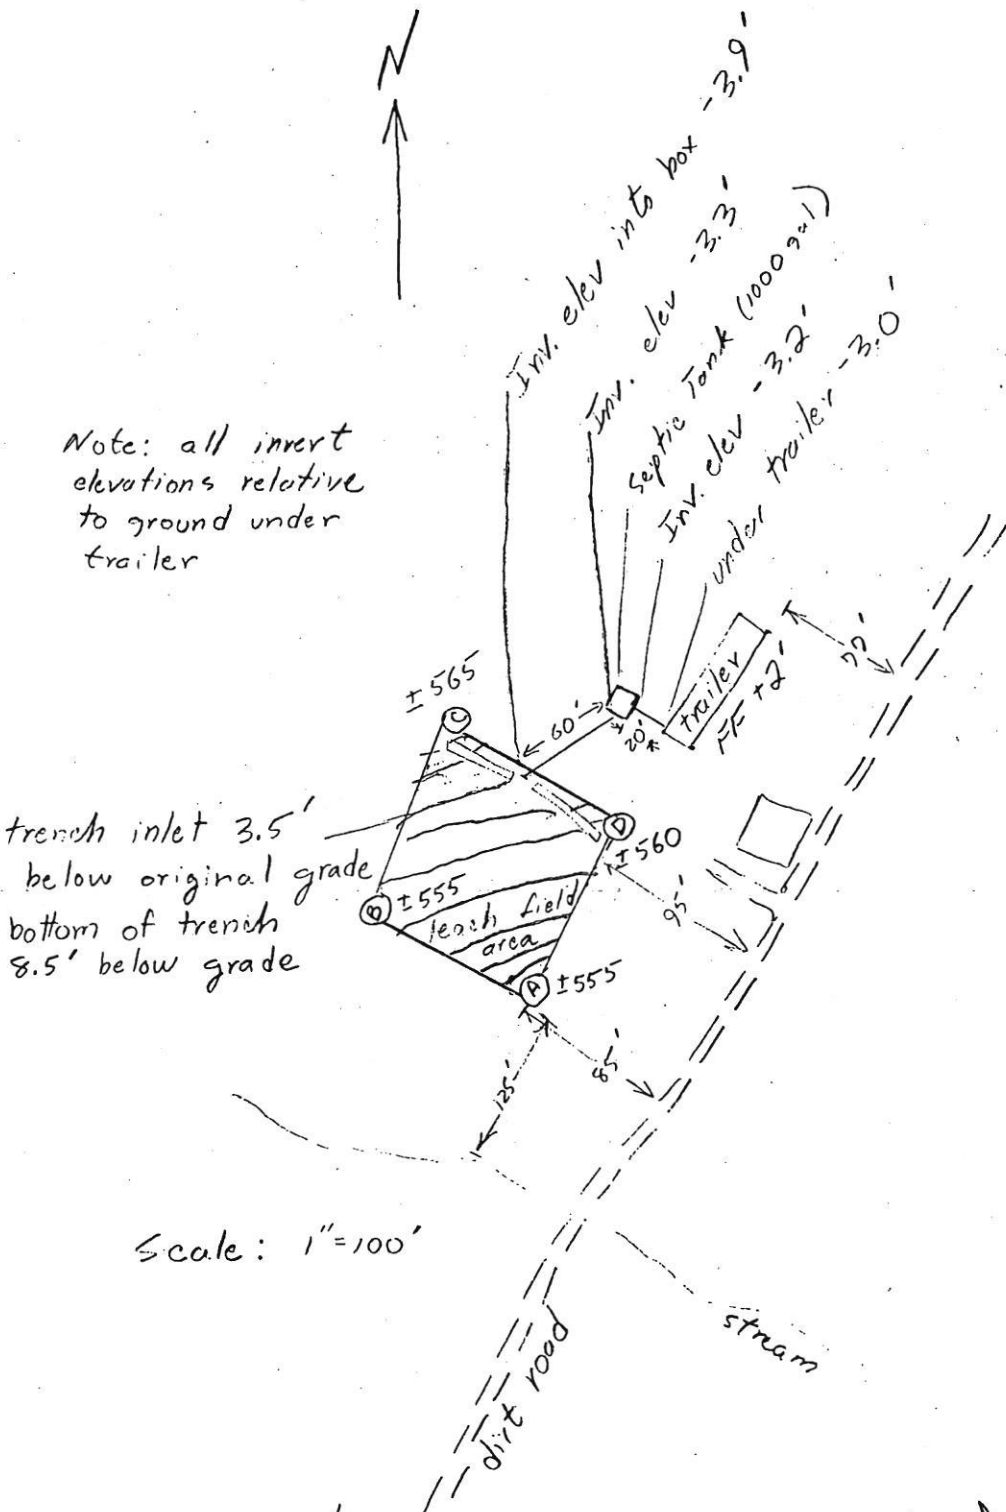 N
Inv. elev into box -3.9'
Inv. elev -3.3'
Septic Tank (1000 gal)
Inv. elev -3.2'
under trailer -3.0'
Note: all invert
elevations relative
to ground under
trailer
trailer
FF +2'
77'
±565
C
60'
20'
D
±560
trench inlet 3.5'
below original grade
bottom of trench
8.5' below grade
B
±555
leach field
area
95'
A
±555
85'
125'
Scale: 1"=100'
stream
dirt road